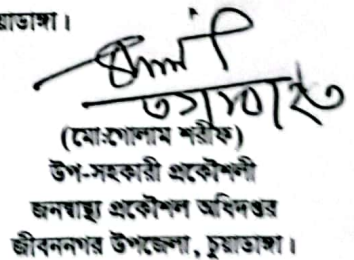 য়াডাঙ্গা।
(মো:গোলাম শরীফ)
উপ-সহকারী প্রকৌশলী
জনস্বাস্থ্য প্রকৌশল অধিদপ্তর
জীবননগর উপজেলা, চুয়াডাঙ্গা।